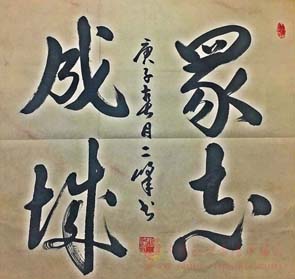 眾志
成城
庚子春月二峰书